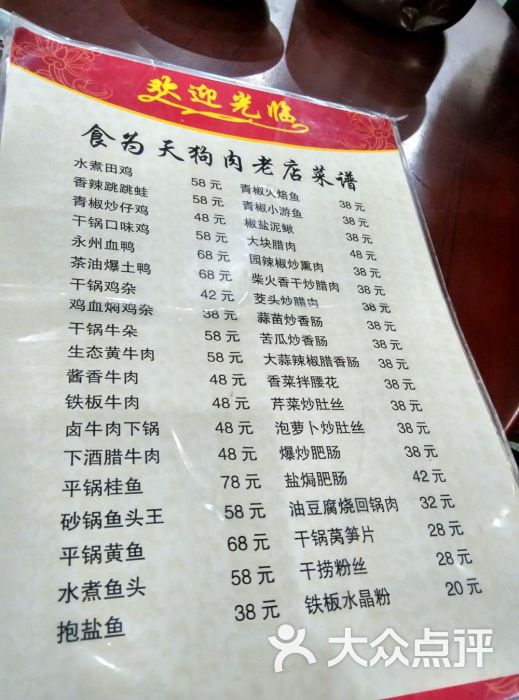 欢迎光临
食为天狗肉老店菜谱
水煮田鸡 58元 青椒火焙鱼 38元
香辣跳跳蛙 58元 青椒小游鱼 38元
青椒炒仔鸡 48元 椒盐泥鳅 38元
干锅口味鸡 58元 大块腊肉 48元
永州血鸭 68元 园辣椒炒熏肉 38元
茶油爆土鸭 68元 柴火香干炒腊肉 38元
干锅鸡杂 42元 茭头炒腊肉 38元
鸡血焖鸡杂 38元 蒜苗炒香肠 38元
干锅牛朵 58元 苦瓜炒香肠 38元
生态黄牛肉 58元 大蒜辣椒腊香肠 38元
酱香牛肉 48元 香菜拌腰花 38元
铁板牛肉 48元 芹菜炒肚丝 38元
卤牛肉下锅 48元 泡萝卜炒肚丝 38元
下酒腊牛肉 48元 爆炒肥肠 38元
平锅桂鱼 78元 盐焗肥肠 42元
砂锅鱼头王 58元 油豆腐烧回锅肉 32元
平锅黄鱼 68元 干锅莴笋片 28元
水煮鱼头 58元 干捞粉丝 28元
抱盐鱼 38元 铁板水晶粉 20元
大众点评